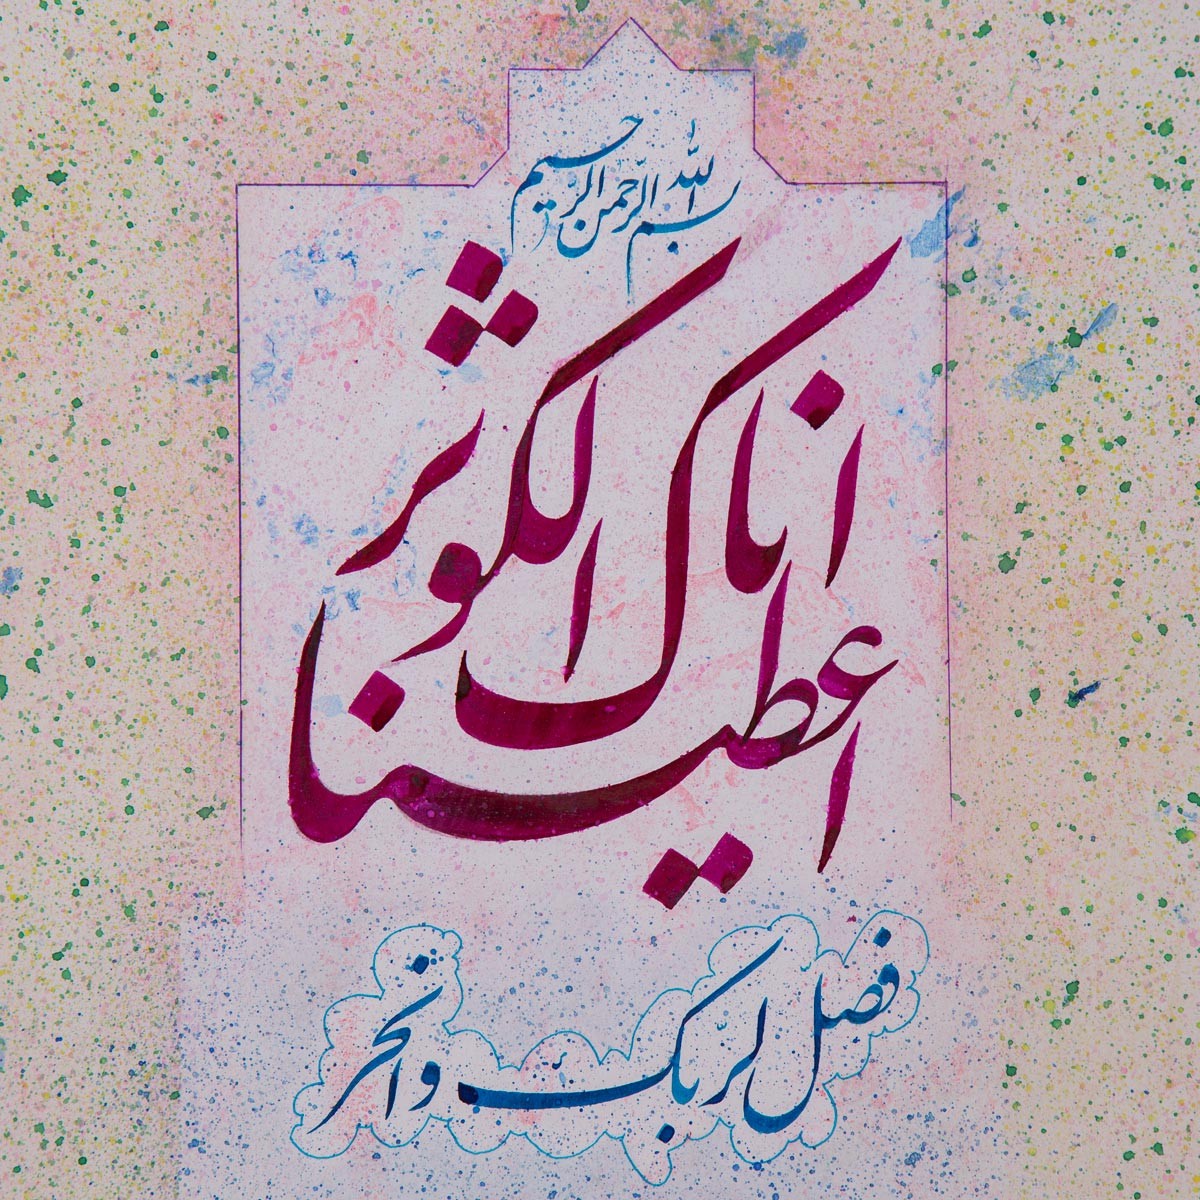 بسم الله الرحمن الرحیم
انا اعطیناک الکوثر
فصل لربّک وانحر